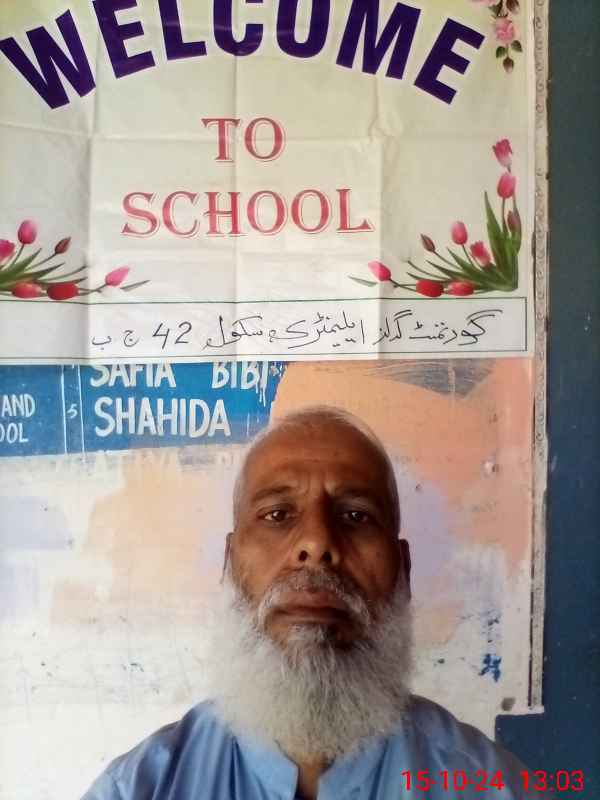 WELCOME
TO
SCHOOL
گورنمنٹ گرلز ایلیمنٹری سکول 42 ج ب
SAFIA BIBI
AND
5 SHAHIDA
OOL
15-10-24 13:03